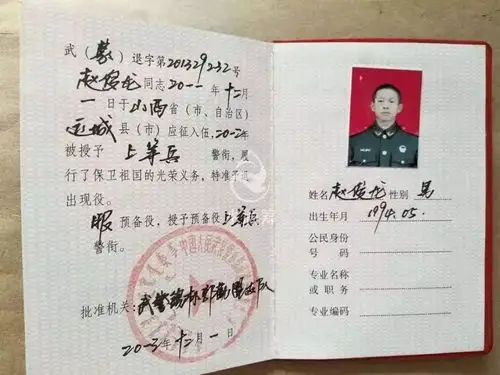 武（蒙）退字第201329232号
赵俊龙同志二〇一一年十二月
一日于山西省（市、自治区）
运城县（市）应征入伍，2012年
被授予 上等兵 警衔，履
行了保卫祖国的光荣义务，特准予退
出现役。
服预备役，授予预备役上等兵
警衔。
批准机关：武警
2013年十二月一日
姓名 赵俊龙 性别 男
出生年月 1994.05.
公民身份
号码
专业名称
或职务
专业编码